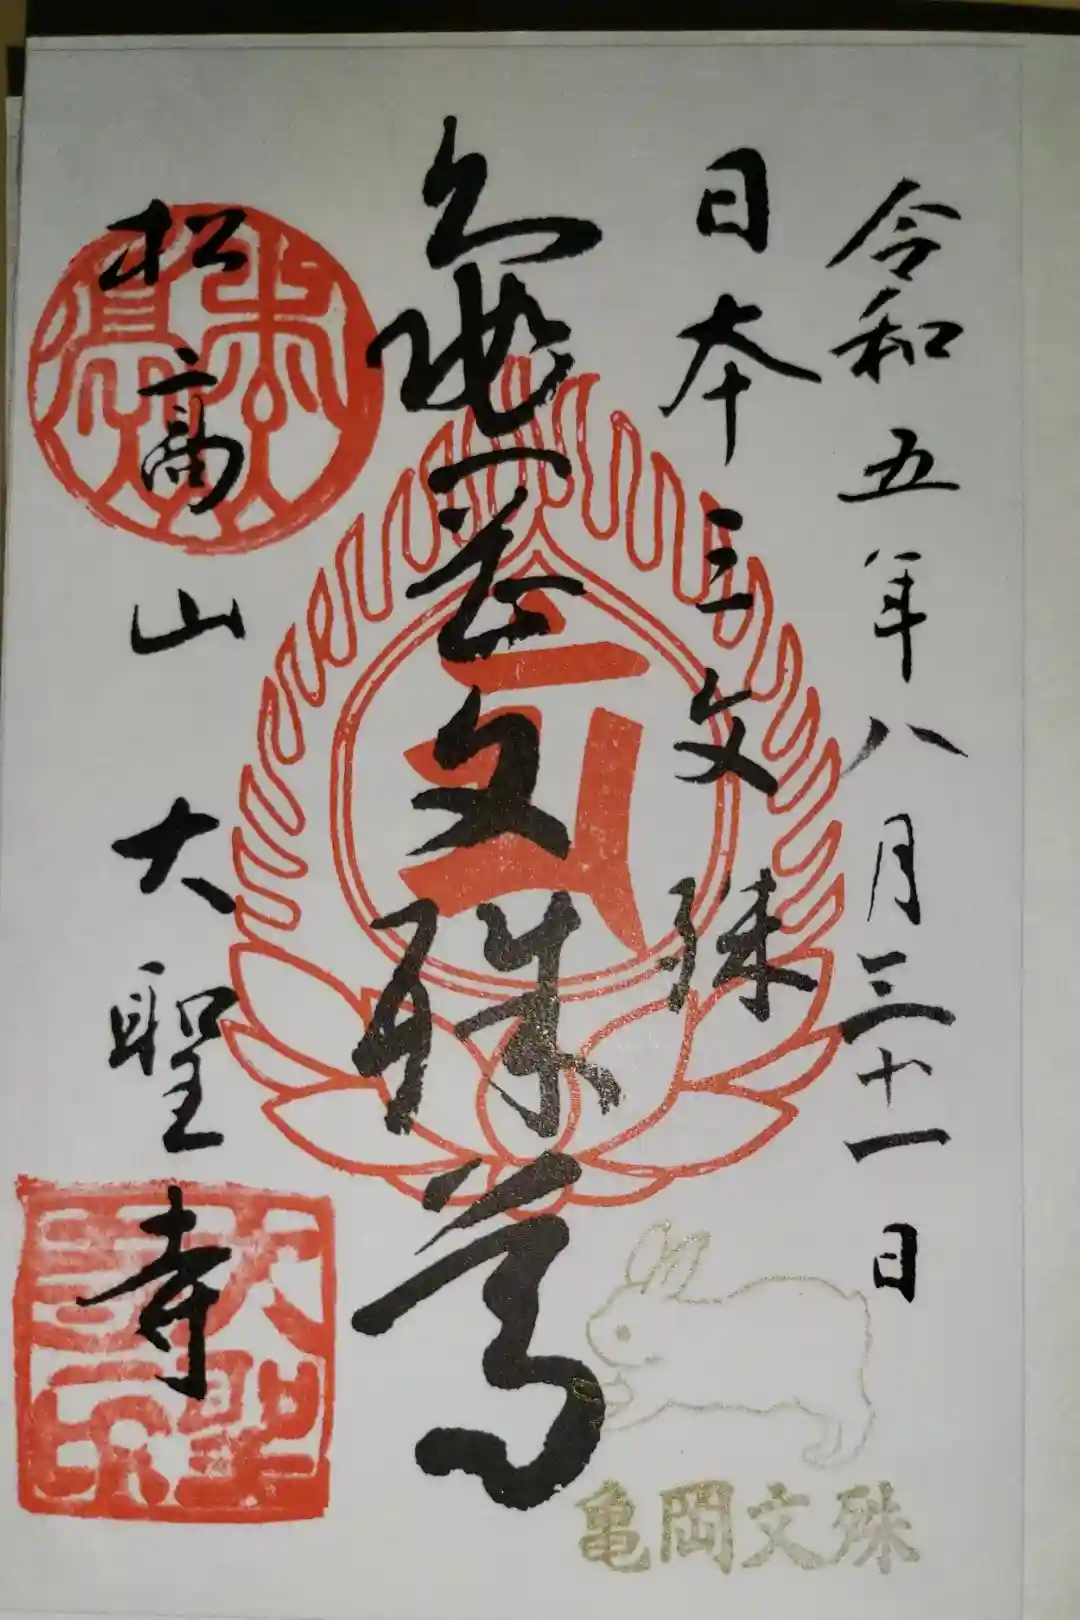 令和五年八月三十一日
日本三文殊
亀岡文殊尊
松高山大聖寺
亀岡文殊